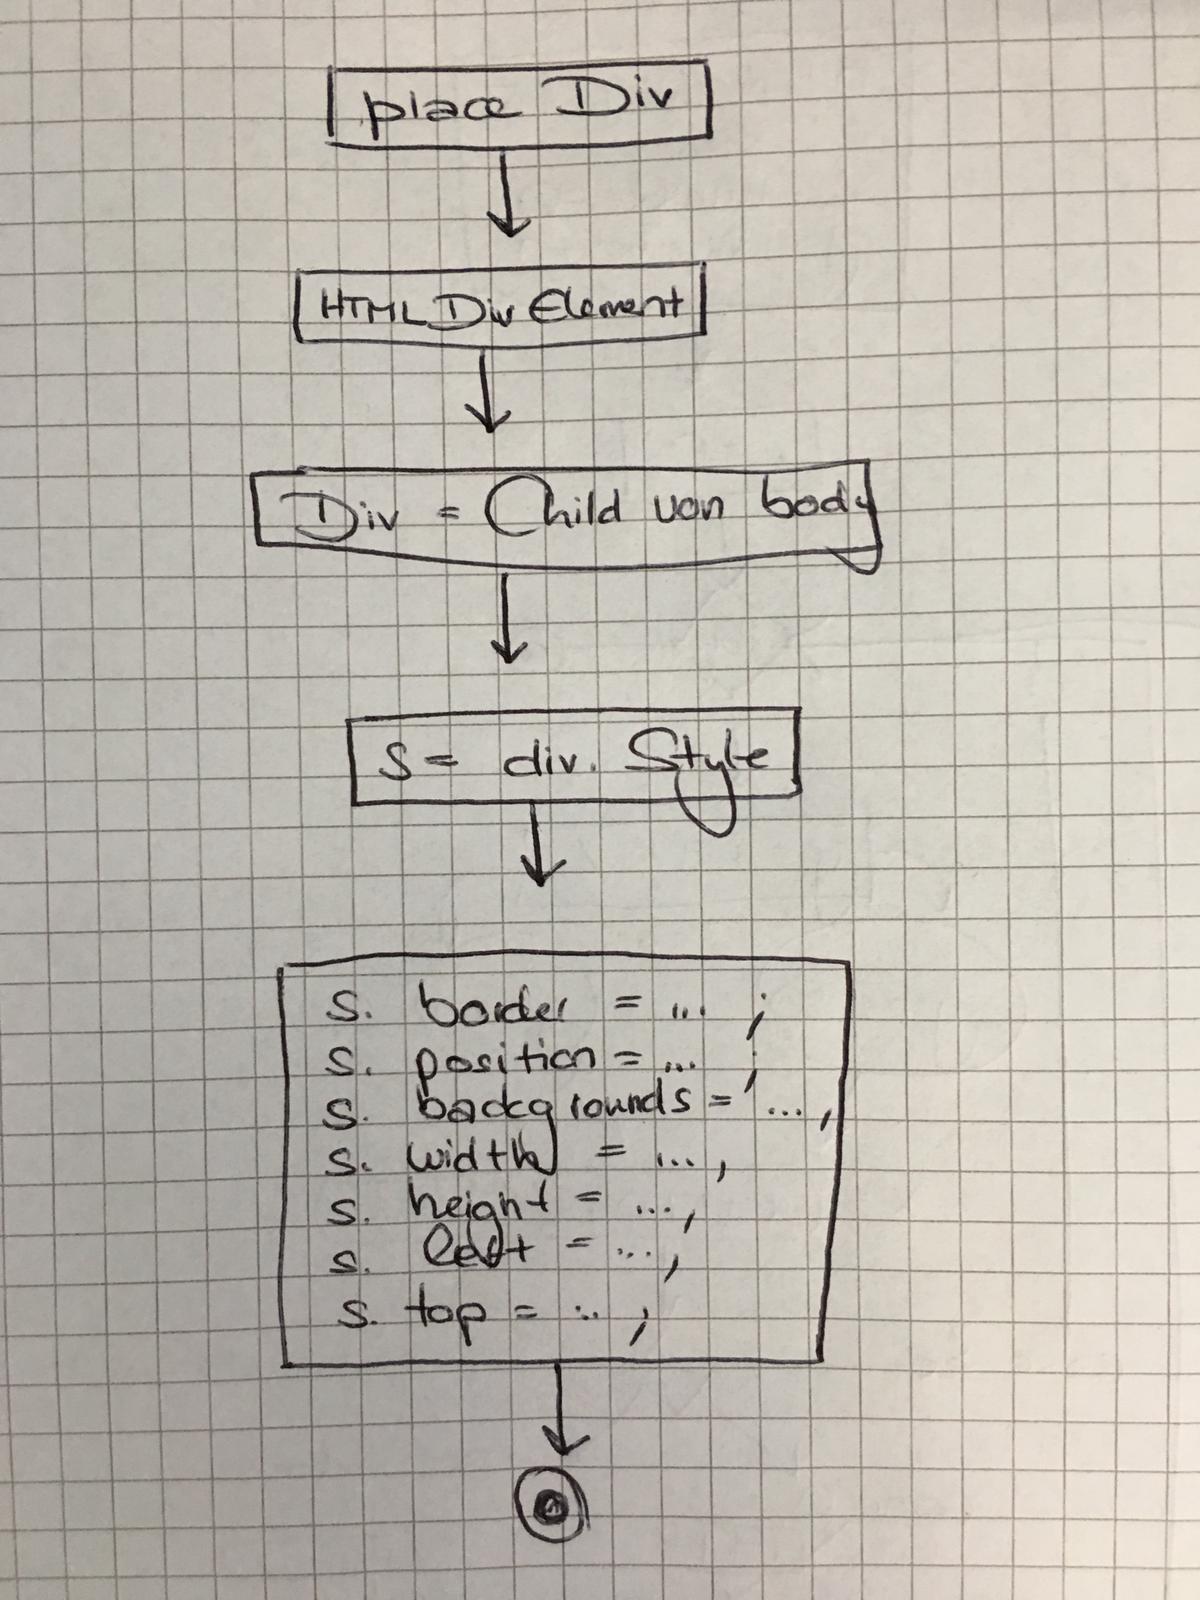 place Div
HTML Div Element
Div = Child von body
S = div. Style
S. border = ... ;
S. position = ... ;
S. backgrounds = ... ,
S. width = ... ,
S. height = ... ,
S. left = ... ,
S. top = ... ;